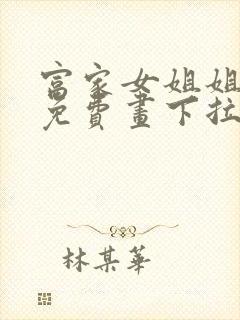 富家女姐姐
免費畫下拉
林某華